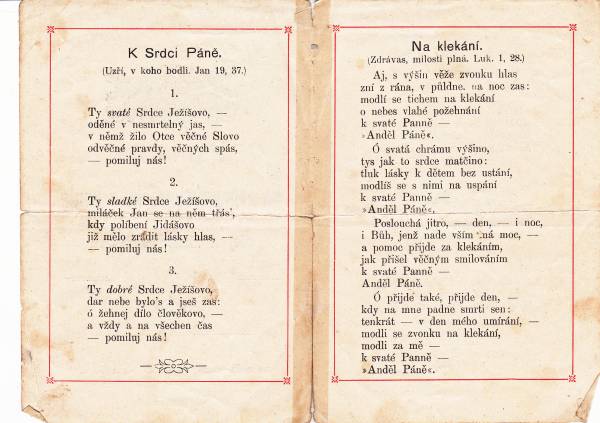 K Srdci Páně.
(Uzří, v koho bodli. Jan 19, 37.)
1.
Ty svaté Srdce Ježíšovo, —
oděné v nesmrtelný jas, —
v němž žilo Otce věčné Slovo
odvěčné pravdy, věčných spás,
— pomiluj nás!
2.
Ty sladké Srdce Ježíšovo,
miláček Jan se na něm třás',
kdy políbení Jidášovo
již mělo zradit lásky hlas, —
— pomiluj nás!
3.
Ty dobré Srdce Ježíšovo,
dar nebe bylo's a jseš zas:
ó žehnej dílo člověkovo, —
a vždy a na všechen čas
— pomiluj nás!
Na klekání.
(Zdrávas, milosti plná. Luk. 1, 28.)
Aj, s výšin věže zvonku hlas
zní z rána, v půldne, na noc zas:
modlí se tichem na klekání
o nebes vlahé požehnání
k svaté Panně —
»Anděl Páně«.
Ó svatá chrámu výšino,
tys jak to srdce matčino:
tluk lásky k dětem bez ustání,
modlíš se s nimi na uspání
k svaté Panně —
»Anděl Páně«.
Poslouchá jitro, — den, — i noc,
i Bůh, jenž nade vším má moc, —
a pomoc přijde za klekáním,
jak přišel věčným smilováním
k svaté Panně —
Anděl Páně.
Ó přijde také, přijde den, —
kdy na mne padne smrti sen:
tenkrát — v den mého umírání, —
modli se zvonku na klekání,
modli za mě —
k svaté Panně —
»Anděl Páně«.